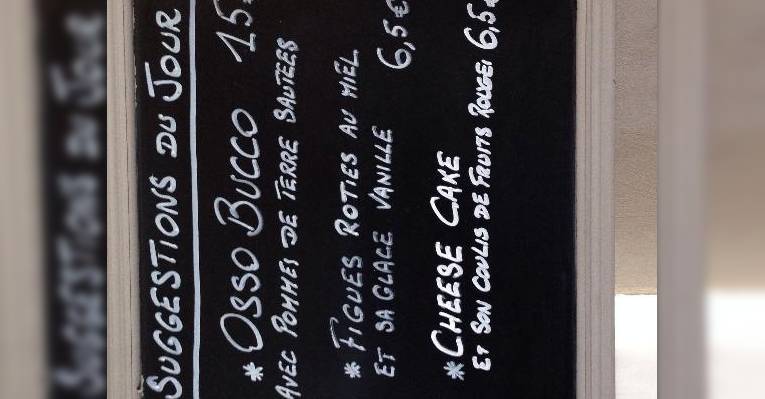 SUGGESTIONS DU JOUR
* OSSO BUCCO 15
AVEC POMMES DE TERRE SAUTEES
* FIGUES ROTIES AU MIEL
ET SA GLACE VANILLE 6,5€
* CHEESE CAKE
ET SON COULIS DE FRUITS ROUGES 6,5€